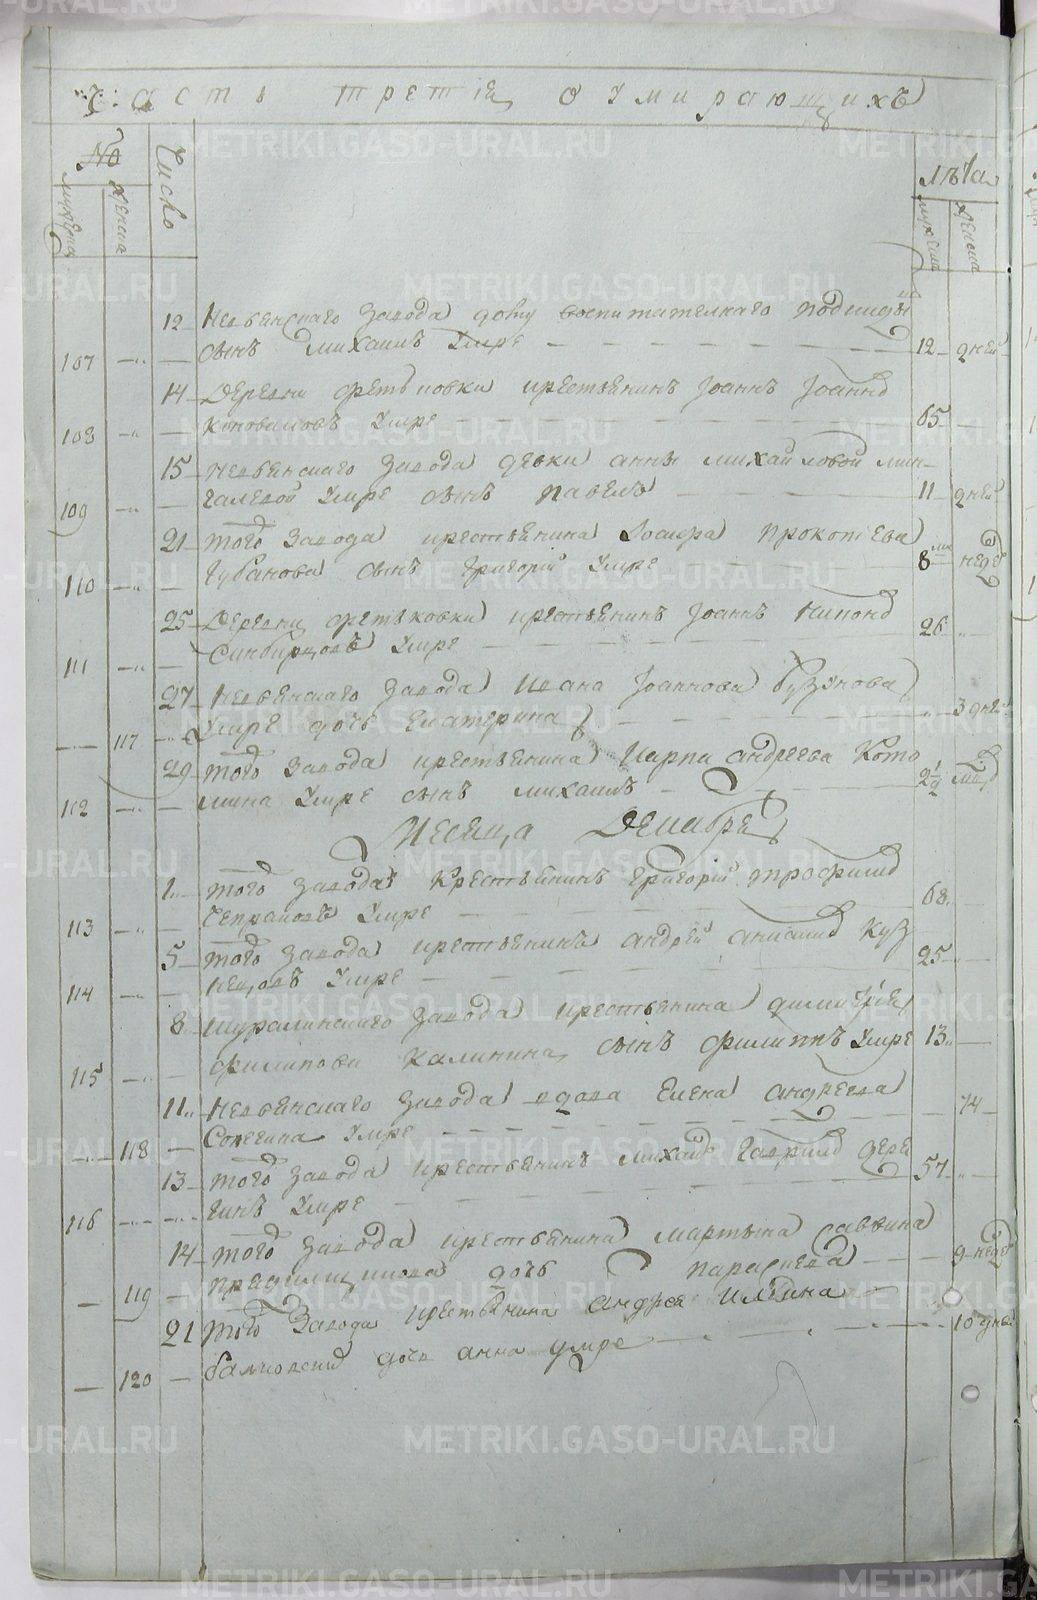 Часть третія о умирающихъ
№ Число Лѣта
мужеска женска мужеска женска
12 Невьянскаго Завода дому воспитателнаго подкиды
107 сынъ михаилъ Умре 12 дней
14 Деревни фетьковки крестьянинъ Іоаннъ Іоаннд
108 Коноваловъ Умре 65
15 невьянскаго Завода девки анны михайловой мин-
109 галевой Умре сынъ павелъ 11 дней
21 того Завода крестьянина Іосифа прокопьева
110 Губанова сынъ григорій Умре 8 недѣ
25 Деревни фетьковки крестьянинъ Іоаннъ
111 Синбирцовъ Умре 26
27 Невьянскаго Завода Ивана Іоаннова Бузунова
117 Умре дочь Екатерина 3 дней
29 того Завода крестьянина Карпа андреева Кото
112 мина Умре сынъ михаилъ 2 1/2
Месяца Декабре
1 того Завода Крестьянинъ григорій трофимд
113 Чепраковъ Умре 68
5 того Завода крестьянинъ андрей анисимд Куз
114 нецовъ Умре 25
8 шуралинскаго Завода крестьянина димитрія
115 филипова Калинина сынъ филиппъ Умре 13
11 Невьянскаго Завода вдова Елена андреева
118 Умре 74
13 того Завода крестьянинъ михаилъ гаврилд дере
116 гинъ Умре 57
14 того Завода крестьянина мартына саввина
119 дочь параскева 9 недѣ
21 того Завода крестьянина андрея ильина
120 дочь анна умре 10 дней
METRIKI.GASO-URAL.RU